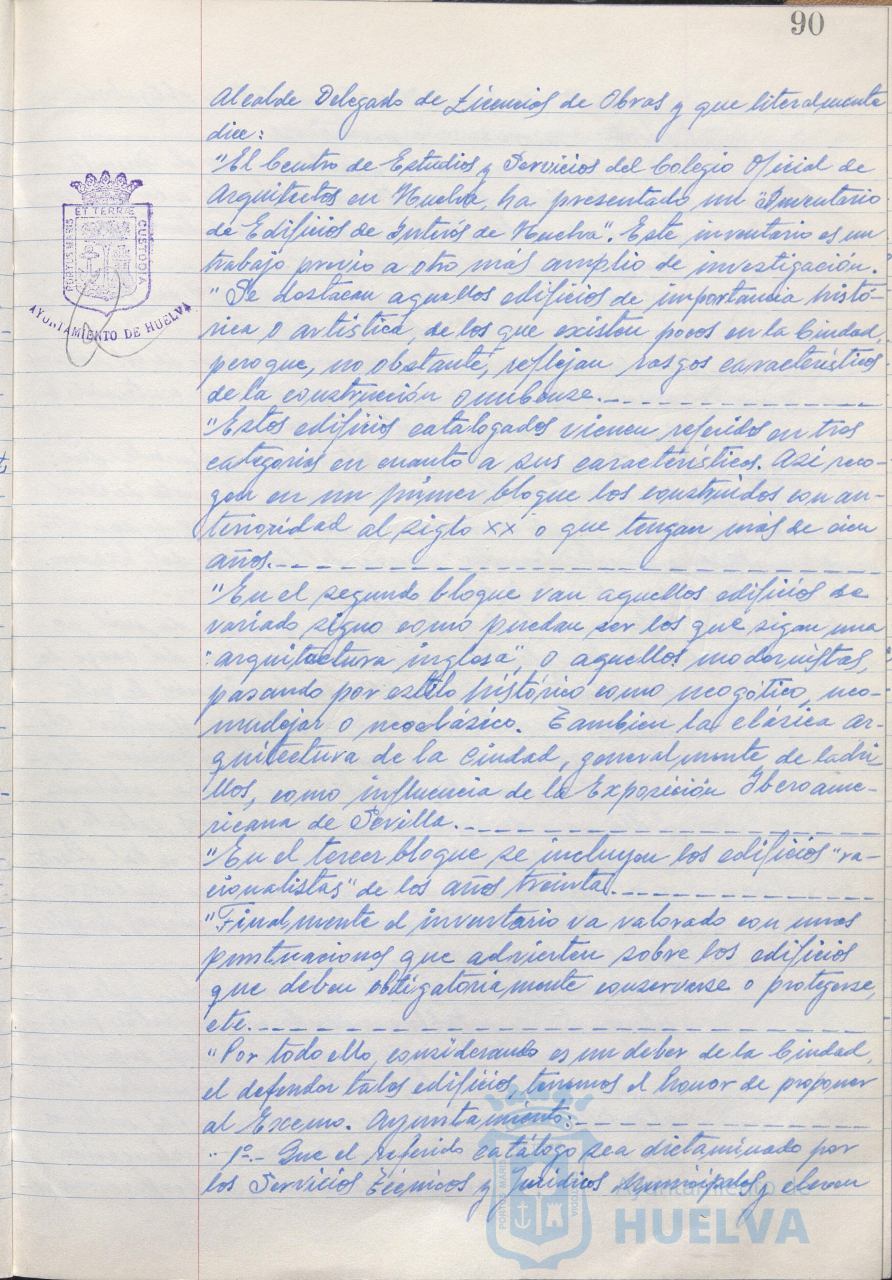 90
Alcalde Delegado de Licencias de Obras y que literalmente
dice:
"El Centro de Estudios y Servicios del Colegio Oficial de
Arquitectos en Huelva, ha presentado un "Inventario
de Edificios de Interés de Huelva". Este inventario es un
trabajo previo a otro más amplio de investigación.
"Se destacan aquellos edificios de importancia histó-
rica o artística, de los que existen pocos en la Ciudad,
pero que, no obstante, reflejan rasgos característicos
de la construcción onubense.
"Estos edificios catalogados vienen referidos en tres
categorías en cuanto a sus características. Así reco-
gen en un primer bloque los construidos con an-
terioridad al siglo XX o que tengan más de cien
años.
"En el segundo bloque van aquellos edificios de
variado signo como puedan ser los que sigan una
"arquitectura inglesa", o aquellos modernistas,
pasando por estilo histórico como neogótico, neo-
mudejar o neoclásico. Tambien la clásica ar-
quitectura de la Ciudad, generalmente de ladri-
llos, como influencia de la Exposición Iberoame-
ricana de Sevilla.
"En el tercer bloque se incluyen los edificios "ra-
cionalistas" de los años treinta.
"Finalmente el inventario va valorado con unas
puntuaciones que advierten sobre los edificios
que deben obligatoriamente conservarse o protegerse,
etc.
"Por todo ello, considerando es un deber de la Ciudad,
el defender tales edificios, tenemos el honor de proponer
al Excmo. Ayuntamiento:
"1º.- Que el referido catálogo sea dictaminado por
los Servicios Técnicos y Jurídicos Municipales y eleven
PORTUS MARIS
ET TERRÆ
CUSTODIA
AYUNTAMIENTO DE HUELVA
PORTUS MARIS
CUSTODIA
Ayuntamiento de
HUELVA